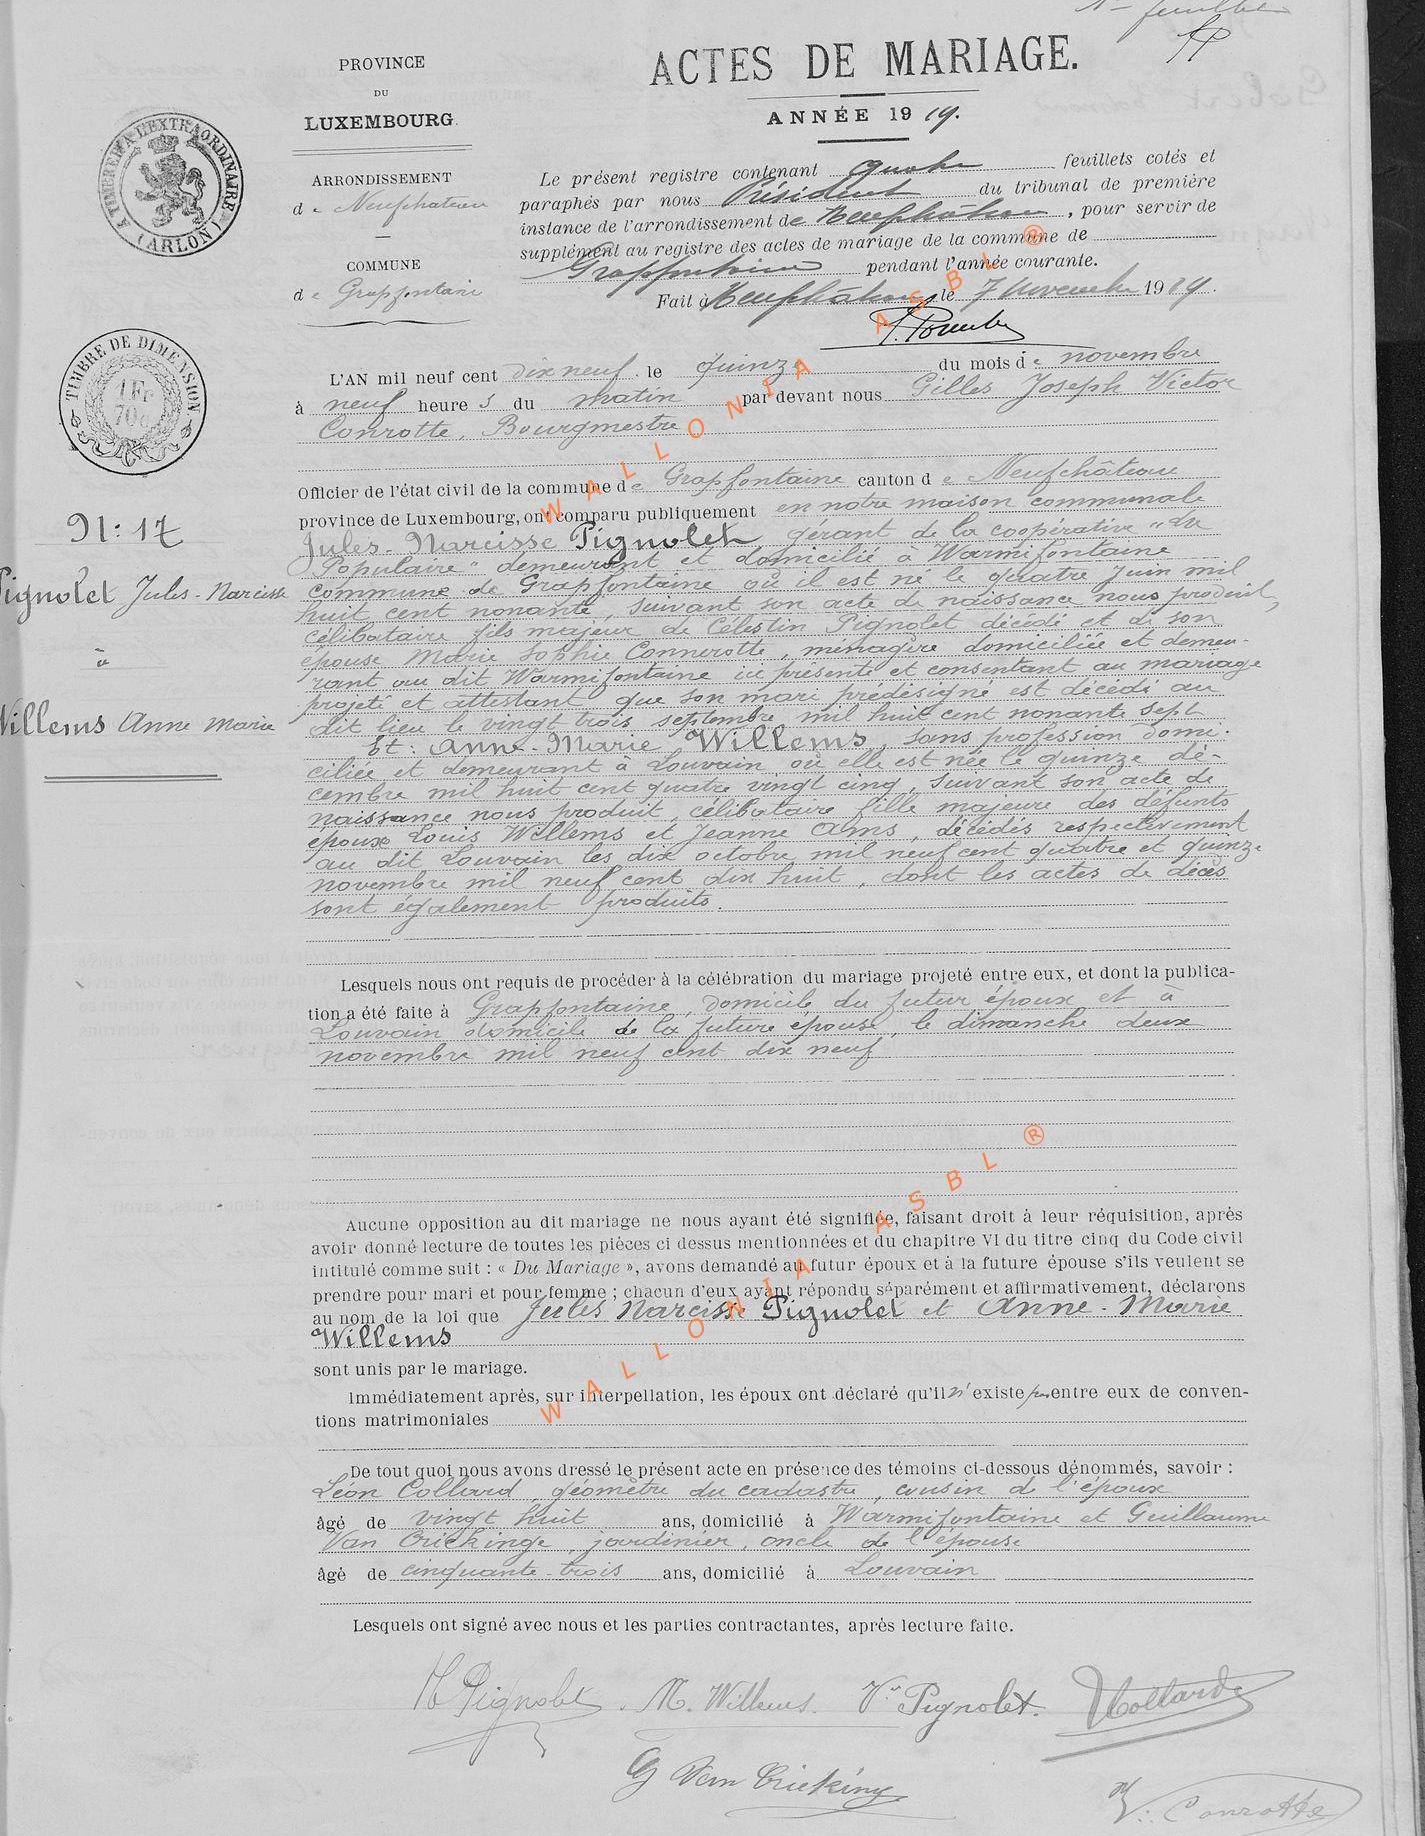 1er feuillet
PROVINCE
DU
LUXEMBOURG.
ARRONDISSEMENT
de Neufchateau
COMMUNE
de Grapfontaine
TIMBRER A L'EXTRAORDINAIRE
(ARLON)
TIMBRE DE DIMENSION
1 Fr
70 c
ACTES DE MARIAGE.
ANNÉE 1919.
Le présent registre contenant quatre feuillets cotés et
paraphés par nous Président du tribunal de première
instance de l'arrondissement de Neufchâteau, pour servir de
supplément au registre des actes de mariage de la commune de
Grapfontaine pendant l'année courante.
Fait à Neufchâteau, le 7 novembre 1919.
L'AN mil neuf cent dix neuf le quinze du mois de novembre
à neuf heures du matin par devant nous Gilles Joseph Victor
Conrotte, Bourgmestre
Officier de l'état civil de la commune de Grapfontaine canton de Neufchâteau
province de Luxembourg, ont comparu publiquement en notre maison communale
Jules-Narcisse Pignolet gérant de la coopérative "La
Populaire" demeurant et domicilié à Warmifontaine
commune de Grapfontaine où il est né le quatre Juin mil
huit cent nonante, suivant son acte de naissance nous produit,
célibataire fils majeur de Célestin Pignolet décédé et de son
épouse Marie Sophie Connerotte, ménagère domiciliée et demeu-
rant au dit Warmifontaine ici présente et consentant au mariage
projeté et attestant que son mari prédésigné est décédé au
dit lieu le vingt trois septembre mil huit cent nonante sept
Et: Anne-Marie Willems, sans profession domi-
ciliée et demeurant à Louvain où elle est née le quinze dé-
cembre mil huit cent quatre vingt cinq, suivant son acte de
naissance nous produit, célibataire fille majeure des défunts
époux Louis Willems et Jeanne Ams, décédés respectivement
au dit Louvain les dix octobre mil neuf cent quatre et quinze
novembre mil neuf cent dix huit, dont les actes de décès
sont également produits.
N: 17
Pignolet Jules-Narcisse
à
Willems Anne Marie
Lesquels nous ont requis de procéder à la célébration du mariage projeté entre eux, et dont la publica-
tion a été faite à Grapfontaine, domicile du futur époux et à
Louvain domicile de la future épouse, le dimanche deux
novembre mil neuf cent dix neuf
Aucune opposition au dit mariage ne nous ayant été signifiée, faisant droit à leur réquisition, après
avoir donné lecture de toutes les pièces ci dessus mentionnées et du chapitre VI du titre cinq du Code civil
intitulé comme suit : « Du Mariage », avons demandé au futur époux et à la future épouse s'ils veulent se
prendre pour mari et pour femme ; chacun d'eux ayant répondu séparément et affirmativement, déclarons
au nom de la loi que Jules Narcisse Pignolet et Anne-Marie
Willems
sont unis par le mariage.
Immédiatement après, sur interpellation, les époux ont déclaré qu'il n'existe pas entre eux de conven-
tions matrimoniales
De tout quoi nous avons dressé le présent acte en présence des témoins ci-dessous dénommés, savoir :
Léon Collard, géomètre du cadastre, cousin de l'époux
âgé de vingt huit ans, domicilié à Warmifontaine et Guillaume
Van Crickinge, jardinier, oncle de l'épouse
âgé de cinquante-trois ans, domicilié à Louvain
Lesquels ont signé avec nous et les parties contractantes, après lecture faite.
Pignolet. M. Willems. Ve Pignolet. Collard
G Van Crickinge
V. Conrotte
WALLONIA ASBL ®
WALLONIA ASBL ®